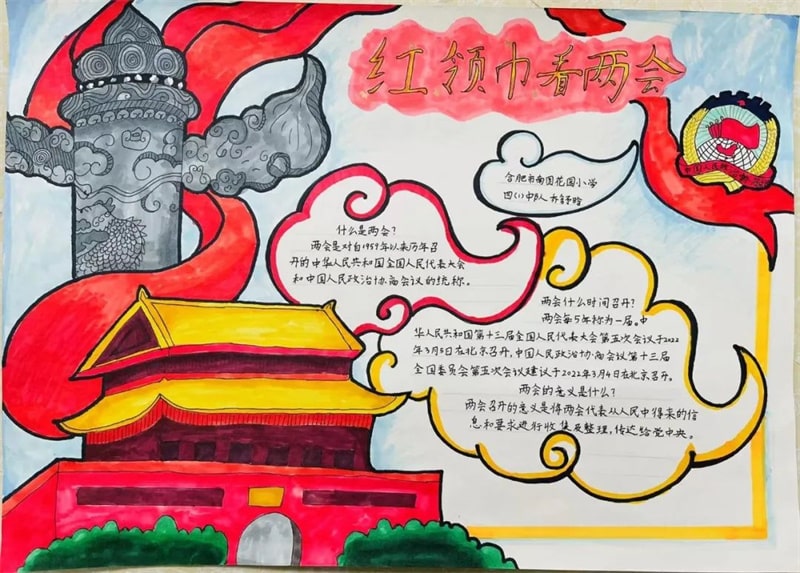 红领巾看两会
合肥市南国花园小学
四(1)中队
什么是两会?
两会是对自1959年以来历年召
开的中华人民共和国全国人民代表大会
和中国人民政治协商会议的统称。
两会什么时间召开?
两会每5年称为一届。中
华人民共和国第十三届全国人民代表大会第五次会议于2022
年3月5日在北京召开,中国人民政治协商会议第十三届
全国委员会第五次会议建议于2022年3月4日在北京召开。
两会的意义是什么?
两会召开的意义是将两会代表从人民中得来的信
息和要求进行收集及整理,传达给党中央。
中国人民政治